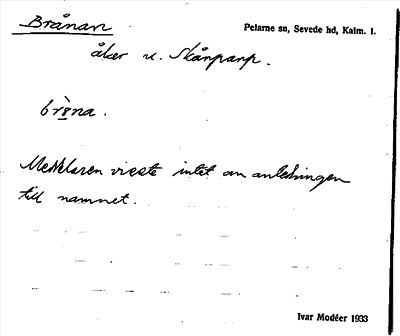 Brånan
Pelarne sn, Sevede hd, Kalm. l.
åker u. Skånparp.
Meddelaren visste intet om anledningen
till namnet.
Ivar Modéer 1933